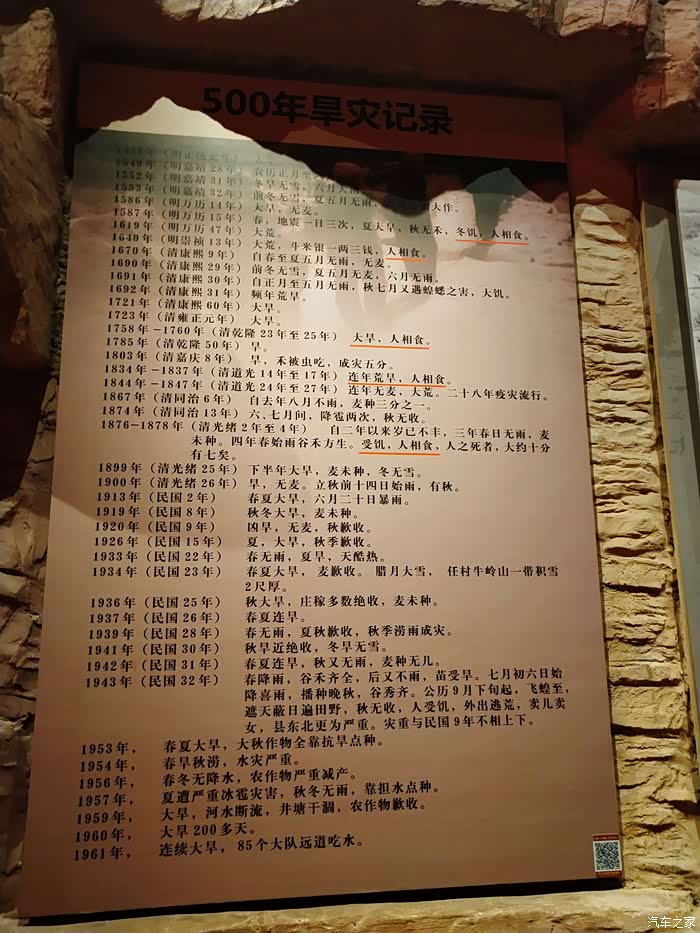 500年旱灾记录
1549年（明嘉靖28年）
1552年（明嘉靖31年） 冬旱无雪，六月大
1553年（明嘉靖32年） 前冬无雪，夏五月无雨，大作。
1586年（明万历14年） 大旱，无麦。
1587年（明万历15年） 春，地震一日三次，夏大旱，秋无禾，冬饥，人相食。
1619年（明万历47年） 大荒。
1640年（明崇祯13年） 大荒，斗米银一两三钱，人相食。
1670年（清康熙9年） 自春至夏五月无雨，无麦。
1690年（清康熙29年） 前冬无雪，夏五月无麦，六月无雨。
1691年（清康熙30年） 自正月至五月无雨，秋七月又遇蝗蟋之害，大饥。
1692年（清康熙31年） 频年荒旱。
1721年（清康熙60年） 大旱。
1723年（清雍正元年） 大旱。
1758年-1760年（清乾隆23年至25年） 大旱，人相食。
1785年（清乾隆50年） 旱。
1803年（清嘉庆8年） 旱，禾被虫吃，成灾五分。
1834年-1837年（清道光14年至17年） 连年荒旱，人相食。
1844年-1847年（清道光24年至27年） 连年无麦，大荒。二十八年疫灾流行。
1867年（清同治6年） 自去年八月不雨，麦种三分之一。
1874年（清同治13年） 六、七月间，降雹两次，秋无收。
1876-1878年（清光绪2年至4年） 自二年以来岁已不丰，三年春日无雨，麦
未种。四年春始雨谷禾方生。受饥，人相食，人之死者，大约十分
有七矣。
1899年（清光绪25年） 下半年大旱，麦未种，冬无雪。
1900年（清光绪26年） 旱，无麦。立秋前十四日始雨，有秋。
1913年（民国2年） 春夏大旱，六月二十日暴雨。
1919年（民国8年） 秋冬大旱，麦未种。
1920年（民国9年） 凶旱，无麦，秋歉收。
1926年（民国15年） 夏，大旱，秋季歉收。
1933年（民国22年） 春无雨，夏旱，天酷热。
1934年（民国23年） 春夏大旱，麦歉收。 腊月大雪， 任村牛岭山一带积雪
2尺厚。
1936年（民国25年） 秋大旱，庄稼多数绝收，麦未种。
1937年（民国26年） 春夏连旱。
1939年（民国28年） 春无雨，夏秋歉收，秋季涝雨成灾。
1941年（民国30年） 秋旱近绝收，冬旱无雪。
1942年（民国31年） 春夏连旱，秋又无雨，麦种无几。
1943年（民国32年） 春降雨，谷禾齐全，后又不雨，苗受旱。七月初六日始
降喜雨，播种晚秋，谷秀齐。公历9月下旬起，飞蝗至，
遮天蔽日遍田野，秋无收，人受饥，外出逃荒，卖儿卖
女，县东北更为严重。灾重与民国9年不相上下。
1953年， 春夏大旱，大秋作物全靠抗旱点种。
1954年， 春旱秋涝，水灾严重。
1956年， 春冬无降水，农作物严重减产。
1957年， 夏遭严重冰雹灾害，秋冬无雨，靠担水点种。
1959年， 大旱，河水断流，井塘干涸，农作物歉收。
1960年， 大旱200多天。
1961年， 连续大旱，85个大队远道吃水。
汽车之家